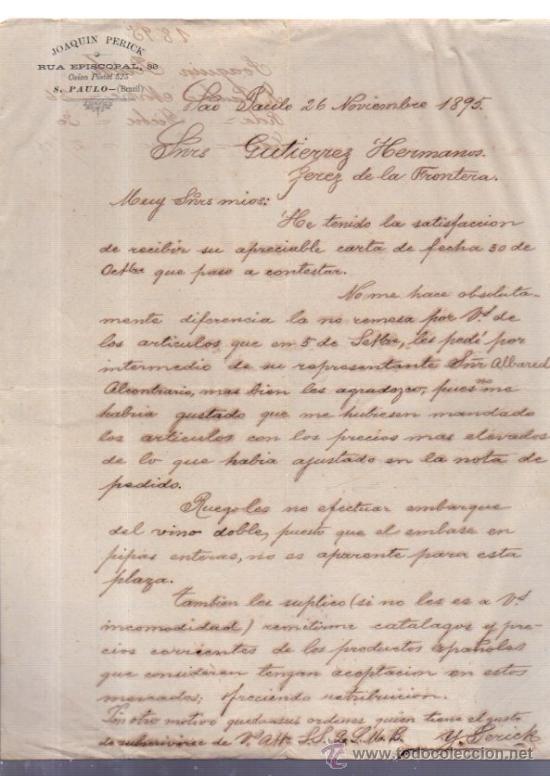 JOAQUIN PERICK
RUA EPISCOPAL, 39
Caixa Postal 525
S. PAULO—(Brazil)
1895
Sao Paulo 26 Noviembre 1895.
Snrs Gutierrez Hermanos.
Jerez de la Frontera.
Muy Snrs mios:
He tenido la satisfaccion
de recibir su apreciable carta de fecha 30 de
Octbre que paso a contestar.
No me hace absoluta-
mente diferencia la no remesa por Vs. de
los articulos que en 5 de Setbre, les pedí por
intermedio de su representante Snr Albared
Alcontrario, mas bien les agradozco, pues no me
habria gustado que me hubiesen mandado
los articulos con los precios mas elevados
de lo que habia ajustado en la nota de
pedido.
Ruegoles no efectuar embarque
del vino doble, puesto que el embase en
pipas enteras, no es aparente para esta
plaza.
Tambien les suplico (si no les es a Vs
incomodidad) remitirme catalagos y pre-
cios corrientes de los productos españoles
que consideren tengan aceptacion en estos
mercados; ofreciendo retribucion.
Sin otro motivo quedo a sus ordenes, quien tiene el gusto
de subscrivirse de Vs. Atto S.S. Q.S.M.B. J. Perick
todocoleccion.net